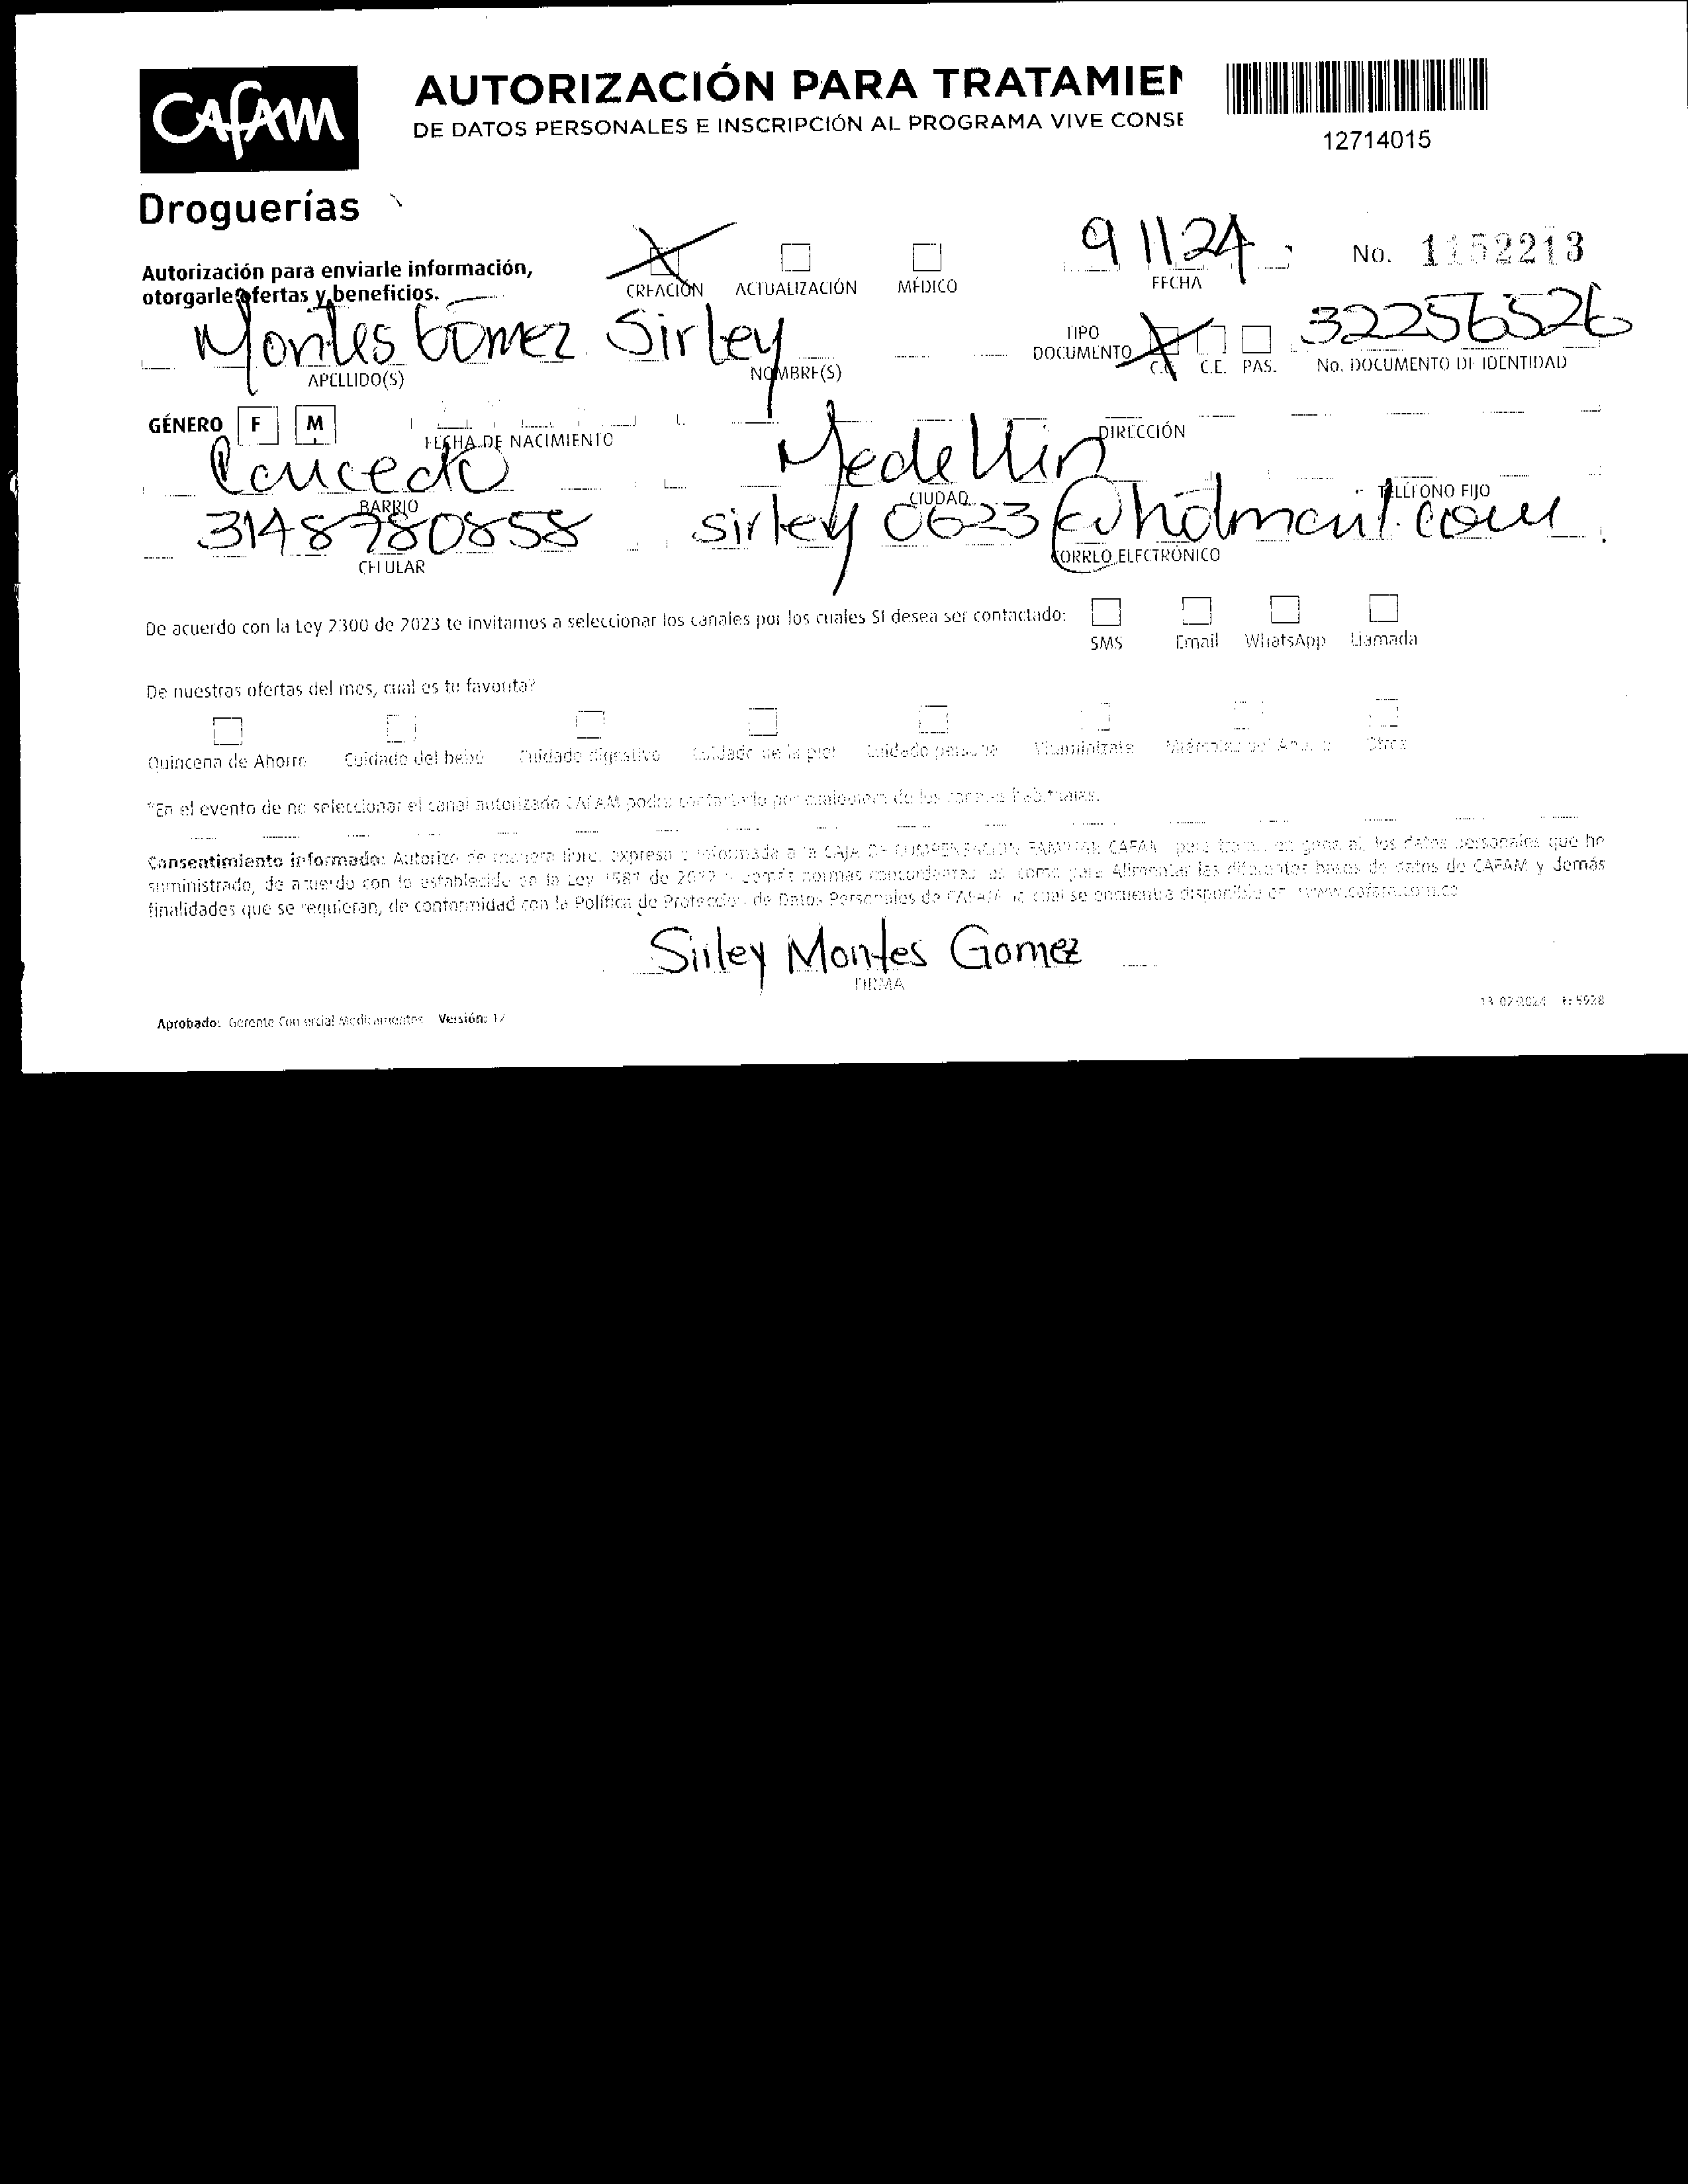 CAFAM
Droguerías
AUTORIZACIÓN PARA TRATAMIEN
DE DATOS PERSONALES E INSCRIPCIÓN AL PROGRAMA VIVE CONSE
12714015
Autorización para enviarle información,
otorgarle ofertas y beneficios.
CREACIÓN ACTUALIZACIÓN MÉDICO
91124
FECHA
No. 1152213
Montes Gómez Sirley
APELLIDO(S) NOMBRE(S)
TIPO
DOCUMENTO
C.C. C.E. PAS.
32256526
No. DOCUMENTO DE IDENTIDAD
GÉNERO F M
FECHA DE NACIMIENTO
DIRECCIÓN
Medellin
BARRIO CIUDAD TELÉFONO FIJO
3148780858 sirley0623@hotmail.com
CELULAR CORREO ELECTRÓNICO
De acuerdo con la Ley 2300 de 2023 te invitamos a seleccionar los canales por los cuales SI desea ser contactado:
SMS Email WhatsApp Llamada
De nuestras ofertas del mes, cual es tu favorita?
Quincena de Ahorro Cuidado del bebé Cuidado digestivo Cuidado de la piel Cuidado personal Vitaminízate Miércoles del Ahorro Otros
*En el evento de no seleccionar el canal autorizado CAFAM podrá contactarlo por cualquiera de los canales habituales.
Consentimiento informado: Autorizo de manera libre, expresa e informada a la CAJA DE COMPENSACIÓN FAMILIAR CAFAM para tratar en general, los datos personales que he
suministrado, de acuerdo con lo establecido en la Ley 1581 de 2012 y demás normas concordantes así como para Alimentar las diferentes bases de datos de CAFAM y demás
finalidades que se requieran, de conformidad con la Política de Protección de Datos Personales de CAFAM la cual se encuentra disponible en www.cafam.com.co
Sirley Montes Gomez
FIRMA
Aprobado: Gerente Comercial Medicamentos Versión: 17
13-02-2024 F: 5928